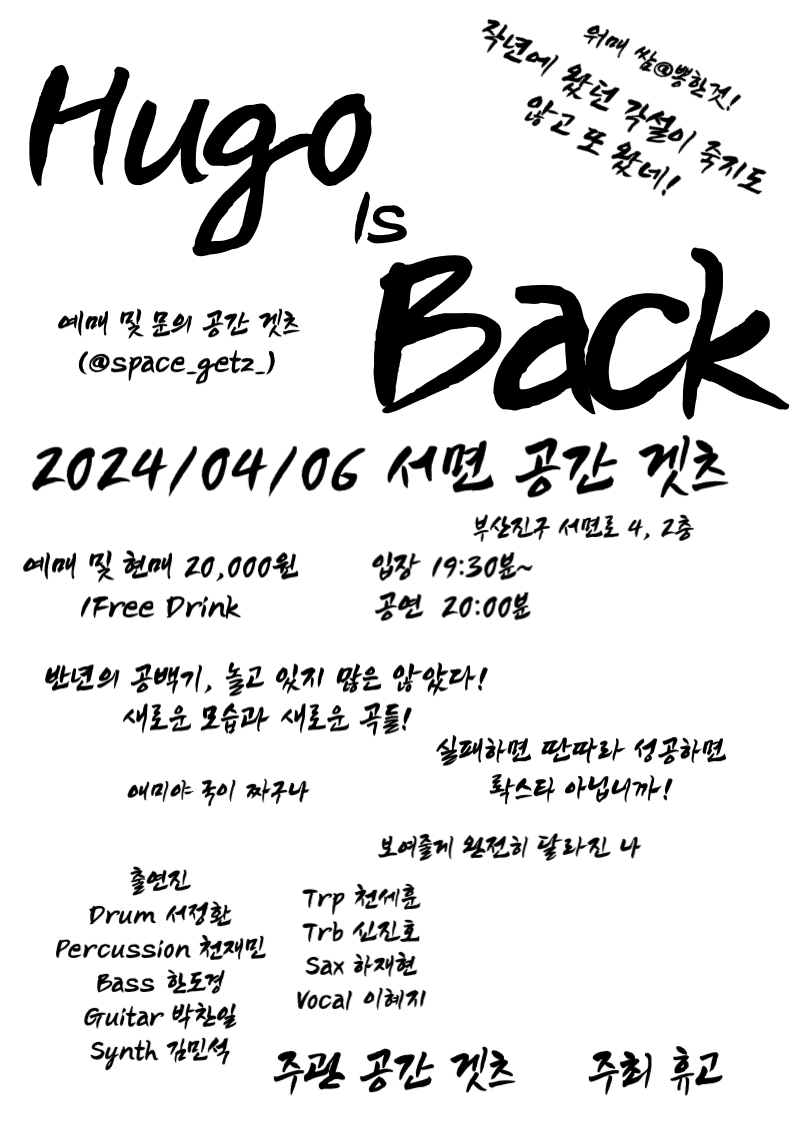 Hugo
Is
Back
워매 쌈@뽕한것!
작년에 왔던 각설이 죽지도
않고 또 왔네!
예매 및 문의 공간 겟츠
(@space_getz_)
2024/04/06 서면 공간 겟츠
부산진구 서면로 4, 2층
예매 및 현매 20,000원
1Free Drink
입장 19:30분~
공연 20:00분
반년의 공백기, 놀고 있지 많은 않았다!
새로운 모습과 새로운 곡들!
실패하면 딴따라 성공하면
롹스타 아닙니까!
애미야 국이 짜구나
보여줄게 완전히 달라진 나
출연진
Drum 서정환
Percussion 천재민
Bass 한도경
Guitar 박찬일
Synth 김민석
Trp 천세훈
Trb 심진호
Sax 하재현
Vocal 이혜지
주관 공간 겟츠
주최 휴고